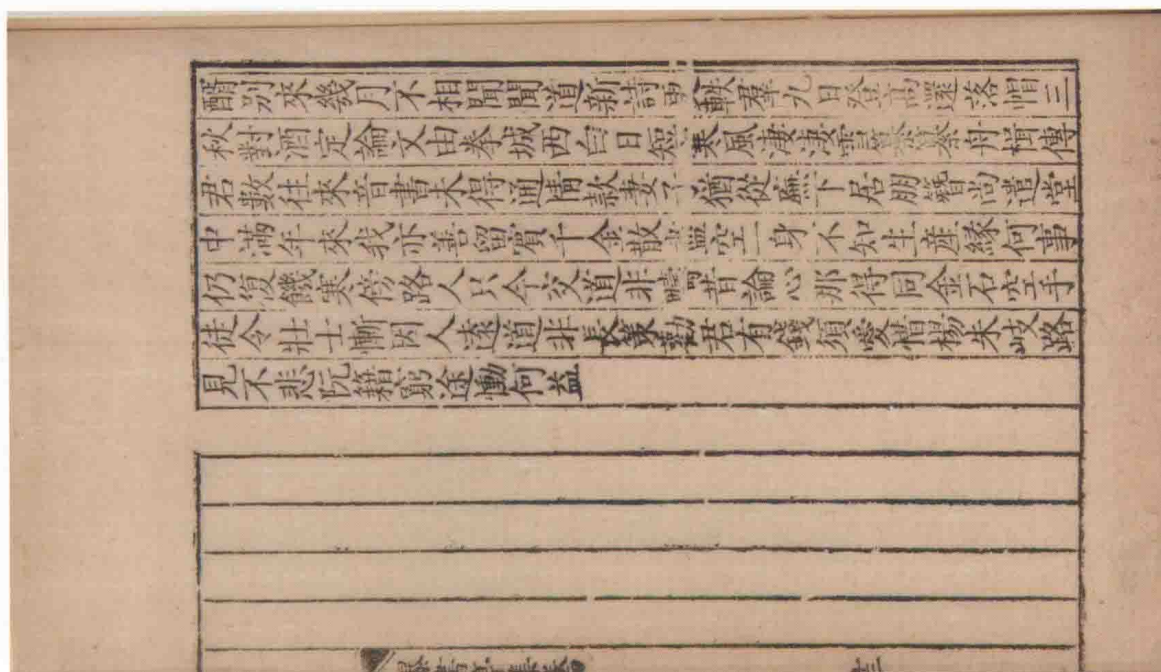 醑別來幾月不相聞聞道新詩更軼羣九日登高還落帽三
秋對酒定論文由拳城西白日短寒風淒淒雪纂纂舟楫傳
君數往來音書未得通情款妻子猶從廡下居朋簪尚遣堂
中滿年來我亦善留賓千金散盡空一身不知生產緣何事
仍復饑寒傍路人只今交道非疇昔論心那得同金石空手
徒令壯士慚因人遠道非長策勸君有錢須愛惜楊朱岐路
見不悲阮籍窮途慟何益